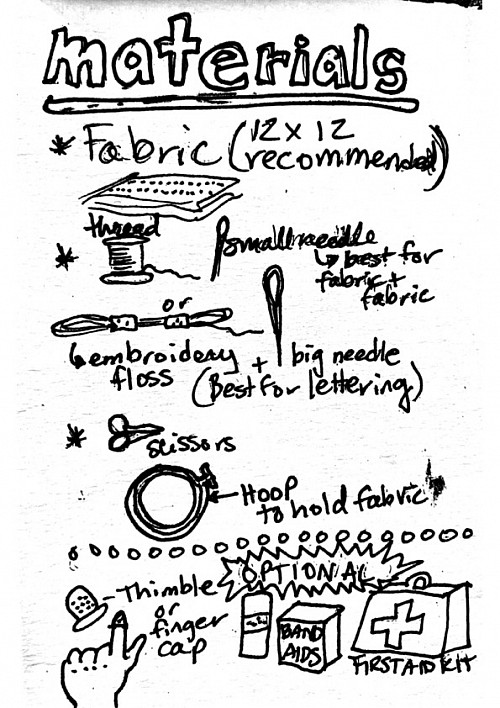 materials
* Fabric (12 x 12
recommended)
thread
* small needle
↳ best for
fabric +
fabric
or
↳ embroidery + big needle
floss (Best for lettering)
* scissors
← HOOP
to hold fabric
OPTIONAL
Thimble
or
finger
cap
BAND
AIDS
FIRST AID KIT